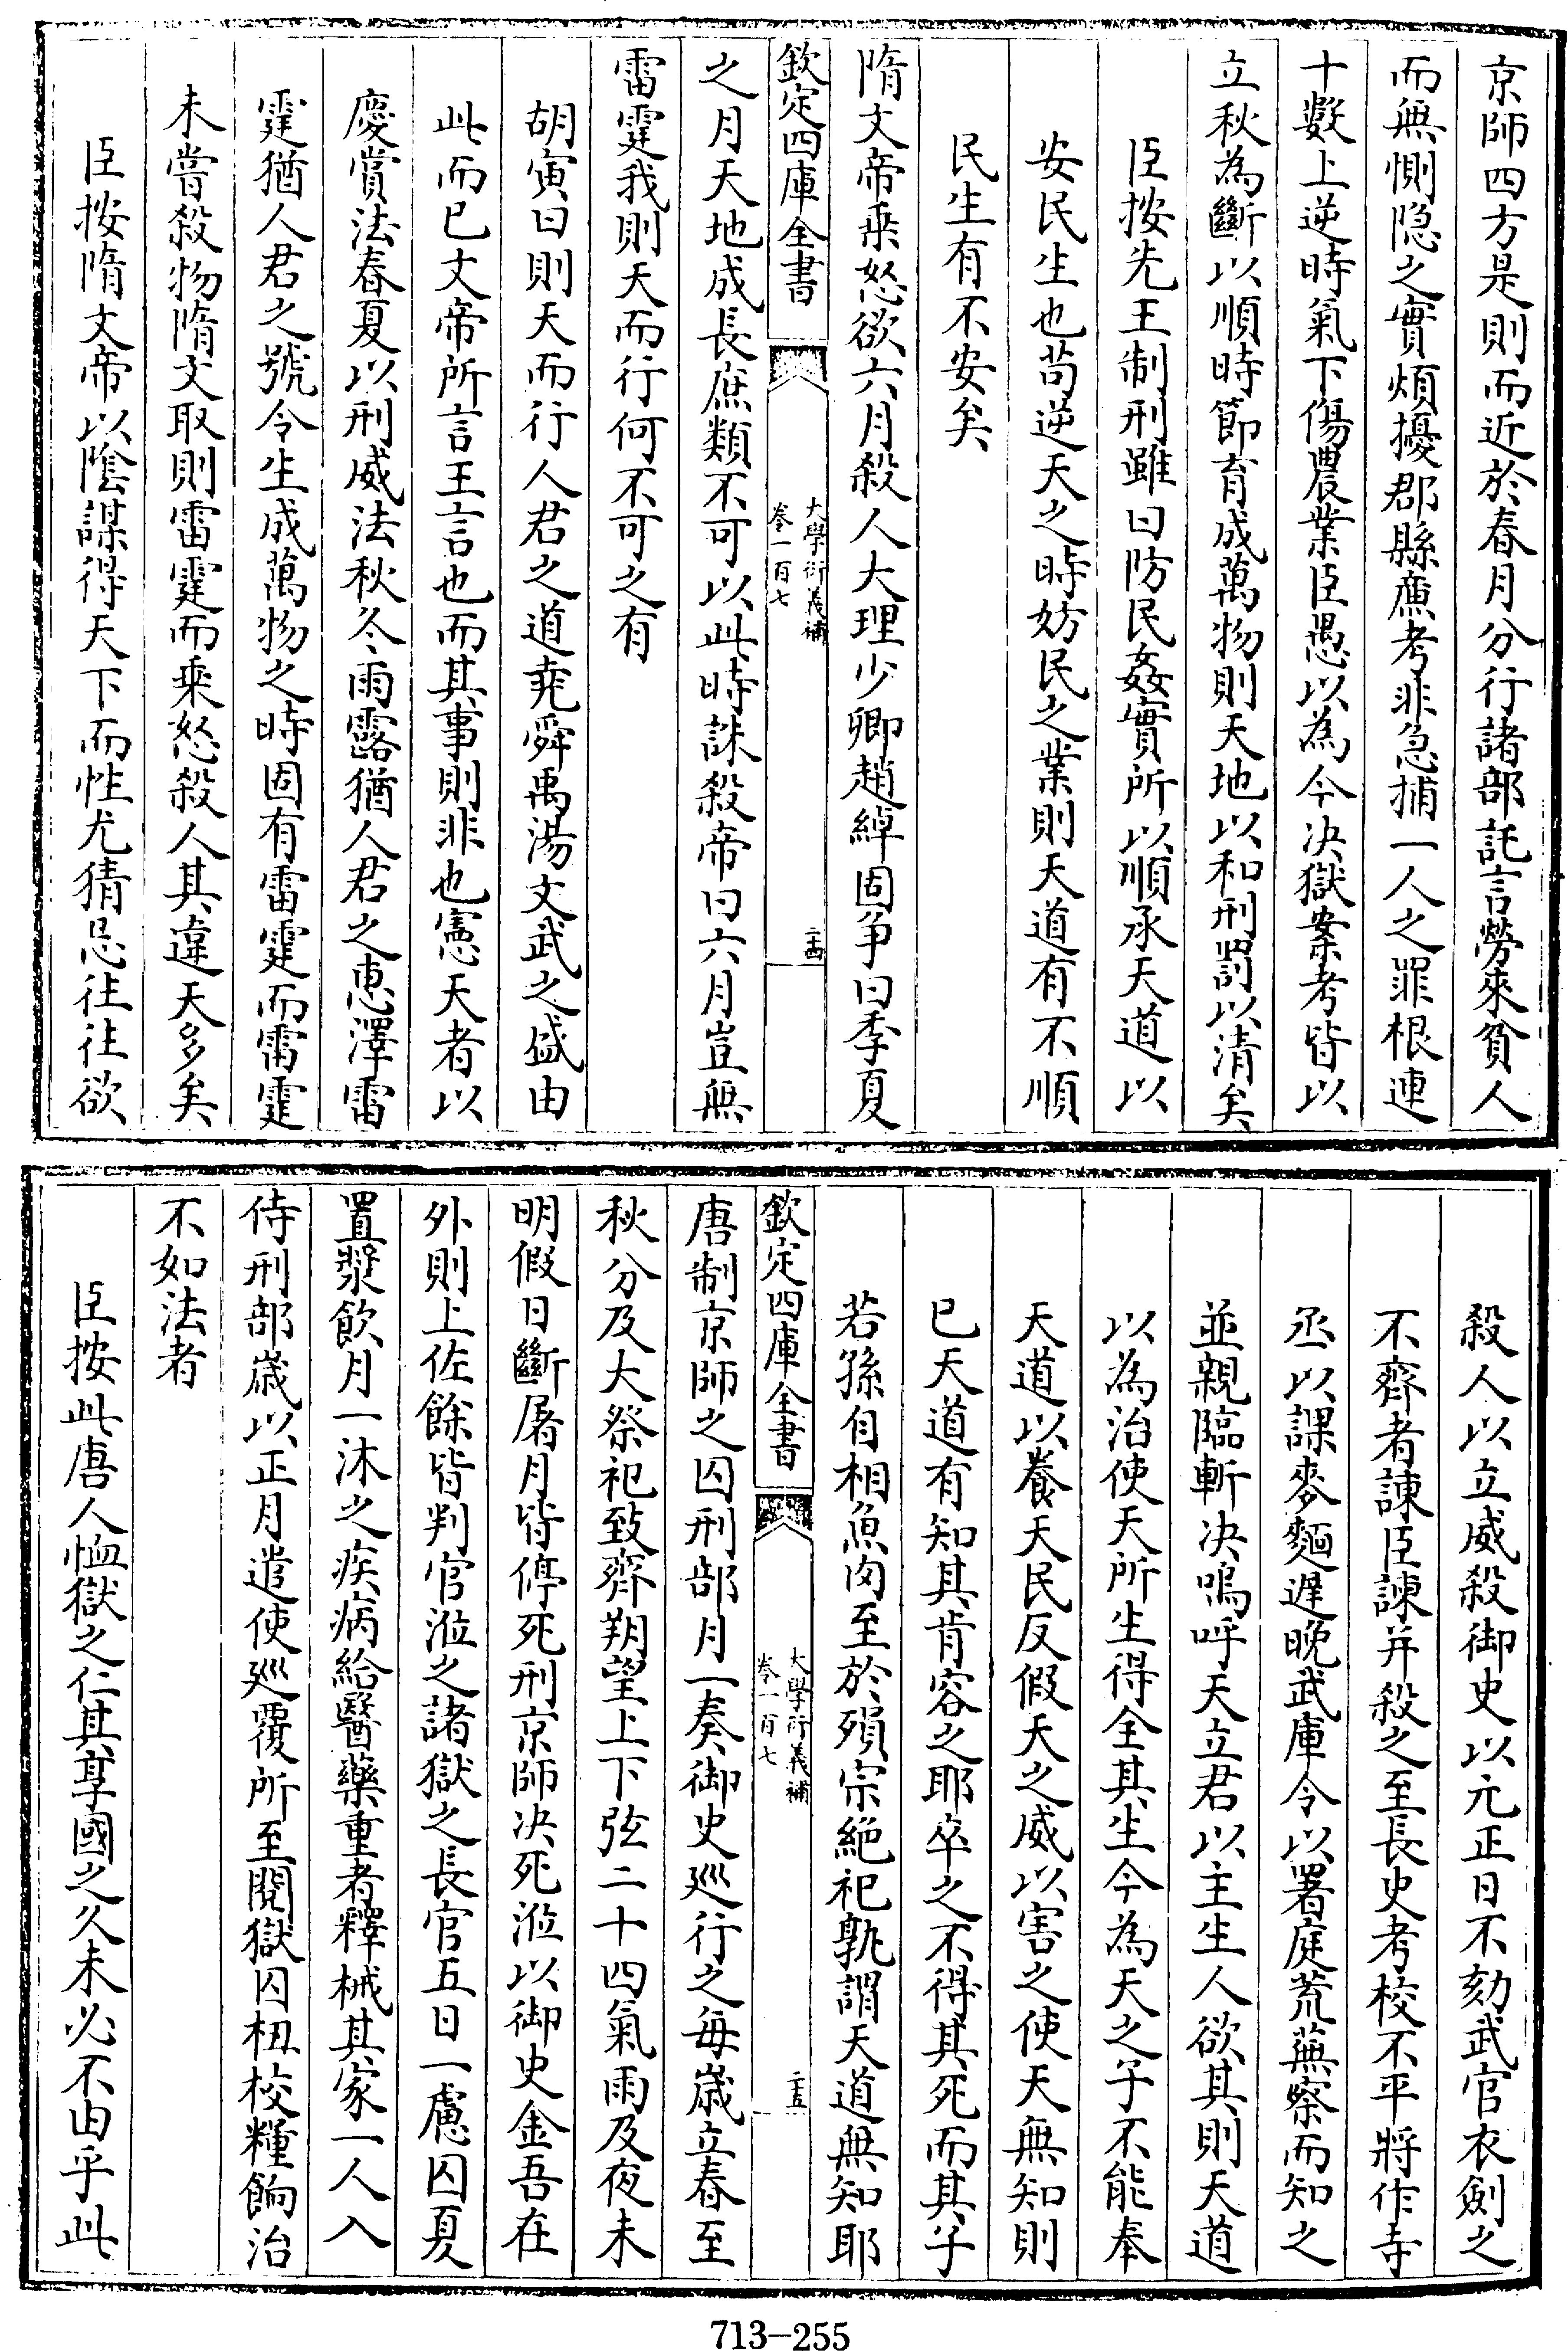 京師四方是則而近於春月分行諸部託言勞來貧人
而無惻隐之實煩擾郡縣㢘考非急捕一人之罪根連
十數上逆時氣下傷農業臣愚以為今决獄案考皆以
立秋為斷以順時節育成萬物則天地以和刑罰以清矣
臣按先王制刑雖曰防民姦實所以順承天道以
安民生也苟逆天之時妨民之業則天道有不順
民生有不安矣
隋文帝乗怒欲六月殺人大理少卿趙綽固争曰季夏
欽定四庫全書
大學衍義補
卷一百七
二十四
之月天地成長庶類不可以此時誅殺帝曰六月豈無
雷霆我則天而行何不可之有
胡寅曰則天而行人君之道堯舜禹湯文武之盛由
此而已文帝所言王言也而其事則非也憲天者以
慶賞法春夏以刑威法秋冬雨露猶人君之恵澤雷
霆猶人君之號令生成萬物之時固有雷霆而雷霆
未嘗殺物隋文取則雷霆而乗怒殺人其違天多矣
臣按隋文帝以隂謀得天下而性尤猜忌往往欲
殺人以立威殺御史以元正日不劾武官衣劍之
不齊者諫臣諫并殺之至長史考校不平將作寺
丞以課麥𪌭遲晚武庫令以署庭荒蕪察而知之
並親臨斬决嗚呼天立君以主生人欲其則天道
以為治使天所生得全其生今為天之子不能奉
天道以養天民反假天之威以害之使天無知則
已天道有知其肯容之耶卒之不得其死而其子
若孫自相魚肉至於殞宗絶祀孰謂天道無知耶
欽定四庫全書
大學衍義補
卷一百七
二十五
唐制京師之囚刑部月一奏御史廵行之每歳立春至
秋分及大祭祀致齊朔望上下弦二十四氣雨及夜未
明假日斷屠月皆停死刑京師决死涖以御史金吾在
外則上佐餘皆判官涖之諸獄之長官五日一慮囚夏
置漿飲月一沐之疾病給醫藥重者釋械其家一人入
侍刑部歳以正月遣使廵覆所至閱獄囚杻校糧餉治
不如法者
臣按此唐人恤獄之仁其享國之久未必不由乎此
713-255